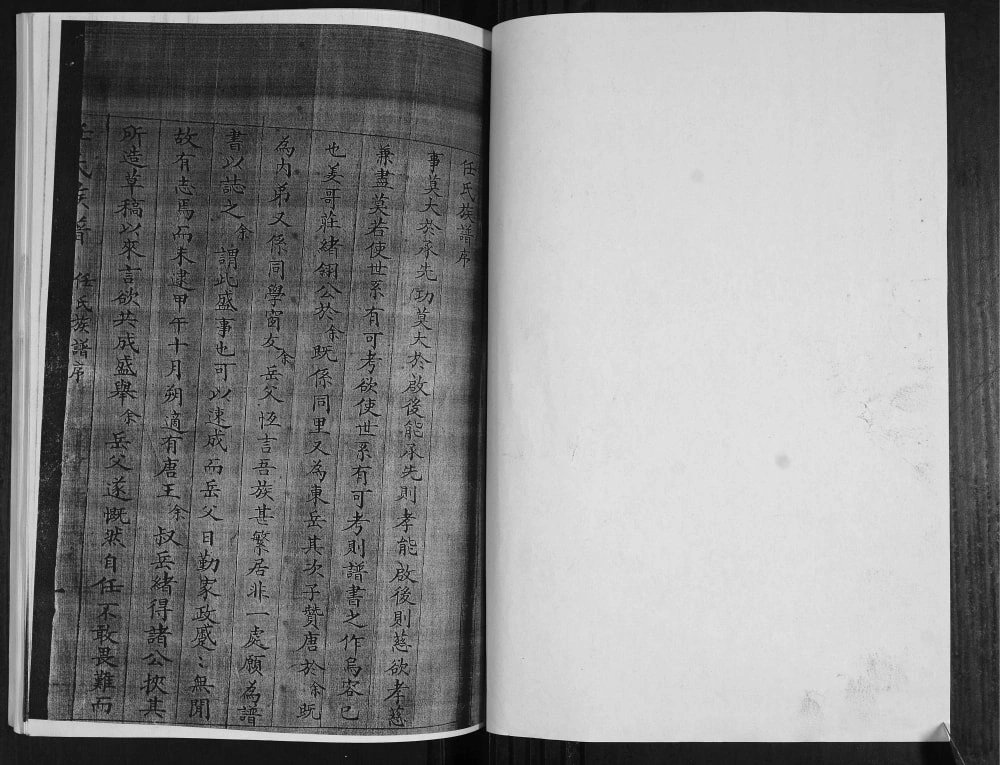 任氏族譜序
事莫大於承先功莫大於啟後能承先則孝能啟後則慈欲孝慈
兼盡莫若使世系有可考欲使世系有可考則譜書之作烏容已
也姜哥莊緒翎公於余既係同里又為東岳其次子贊唐於余既
為內弟又係同學窗友余岳父恆言吾族甚繁居非一處願為譜
書以誌之余謂此盛事也可以速成而岳父日勤家政蹙〻無聞
故有志焉而未逮甲午十月朔適有唐王余叔岳緒得諸公挾其
所造草稿以來言欲共成盛舉余岳父遂慨然自任不敢畏難而
任氏族譜 任氏族譜序 一